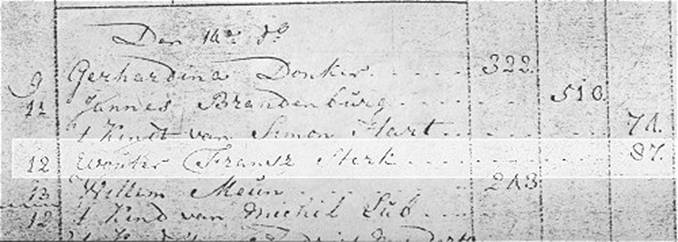 Den 14en do
9 Gerhardina Donker 322.
11 Jannes Brandenburg 510.
1 Kindt van Simon Hart 74.
12 Wouter Fransz Herk 87.
13 Willem Meun 243
12 1 Kind van Michil Lub